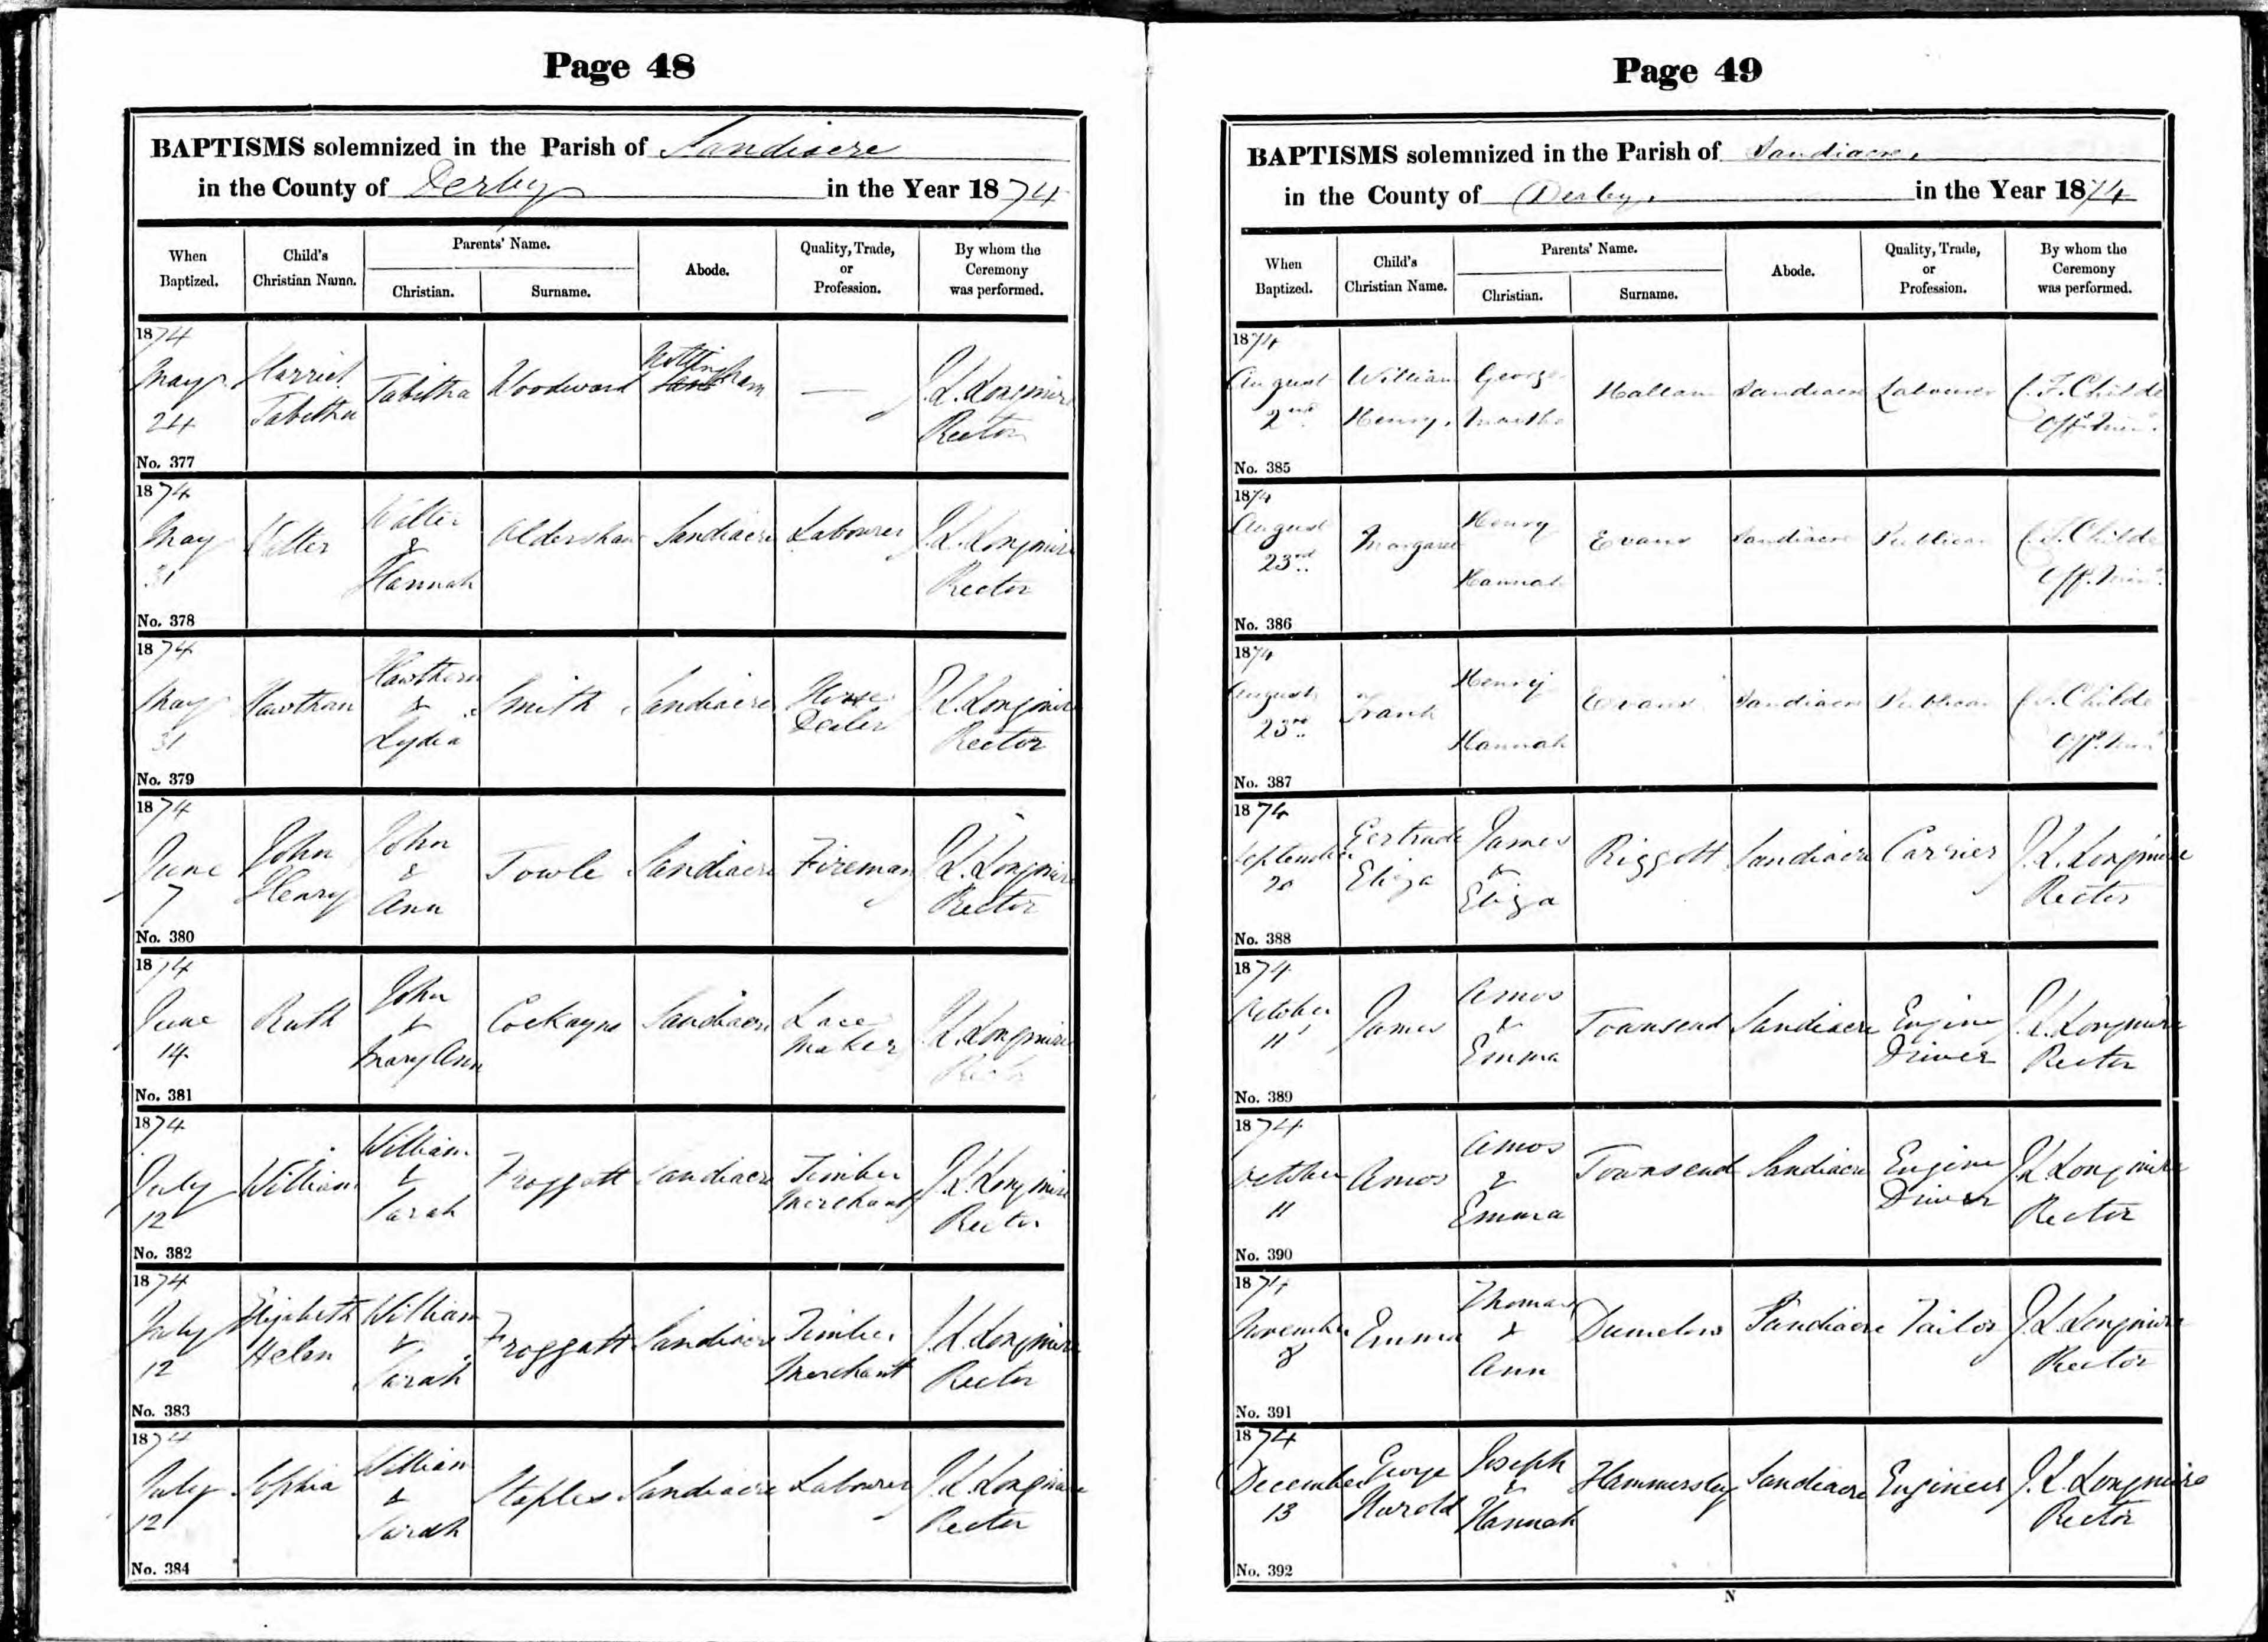 Page 48
BAPTISMS solemnized in the Parish of Sandiacre
in the County of Derby in the Year 1874
When Baptized.
Child's Christian Name.
Parents' Name.
Christian.
Surname.
Abode.
Quality, Trade, or Profession.
By whom the Ceremony was performed.
1874
May 24
Harriet Tabitha
Tabitha
Woodward
Nottingham
—
J. L. Longmire Rector
No. 377
1874
May 31
Walter
Walter & Hannah
Aldershaw
Sandiacre
Labourer
J. L. Longmire Rector
No. 378
1874
May 31
Hawthan
Hawthern & Lydia
Smith
Sandiacre
Horse Dealer
J. L. Longmire Rector
No. 379
1874
June 7
John Henry
John & Ann
Towle
Sandiacre
Fireman
J. L. Longmire Rector
No. 380
1874
June 14
Ruth
John & Mary Ann
Cockayne
Sandiacre
Lace Maker
J. L. Longmire Rector
No. 381
1874
July 12
William
William & Sarah
Froggatt
Sandiacre
Timber Merchant
J. L. Longmire Rector
No. 382
1874
July 12
Elizabeth Helen
William & Sarah
Froggatt
Sandiacre
Timber Merchant
J. L. Longmire Rector
No. 383
1874
July 12
Sophia
William & Sarah
Staples
Sandiacre
Labourer
J. L. Longmire Rector
No. 384
Page 49
BAPTISMS solemnized in the Parish of Sandiacre.
in the County of Derby. in the Year 1874
When Baptized.
Child's Christian Name.
Parents' Name.
Christian.
Surname.
Abode.
Quality, Trade, or Profession.
By whom the Ceremony was performed.
1874
August 2nd
William Henry.
George Martha
Hallam
Sandiacre
Labourer
C. F. Childe Off. Min.
No. 385
1874
August 23rd
Margaret
Henry Hannah
Evans
Sandiacre
Publican
C. F. Childe Off. Min.
No. 386
1874
August 23rd
Frank
Henry Hannah
Evans
Sandiacre
Publican
C. F. Childe Off. Min.
No. 387
1874
September 20
Gertrude Eliza
James & Eliza
Riggott
Sandiacre
Carrier
J. L. Longmire Rector
No. 388
1874
October 11
James
Amos & Emma
Townsend
Sandiacre
Engine Driver
J. L. Longmire Rector
No. 389
1874
October 11
Amos
Amos & Emma
Townsend
Sandiacre
Engine Driver
J. L. Longmire Rector
No. 390
1874
November 8
Emma
Thomas & Ann
Dumelow
Sandiacre
Tailor
J. L. Longmire Rector
No. 391
1874
December 13
George Harold
Joseph & Hannah
Hammersley
Sandiacre
Engineer
J. L. Longmire Rector
No. 392
N